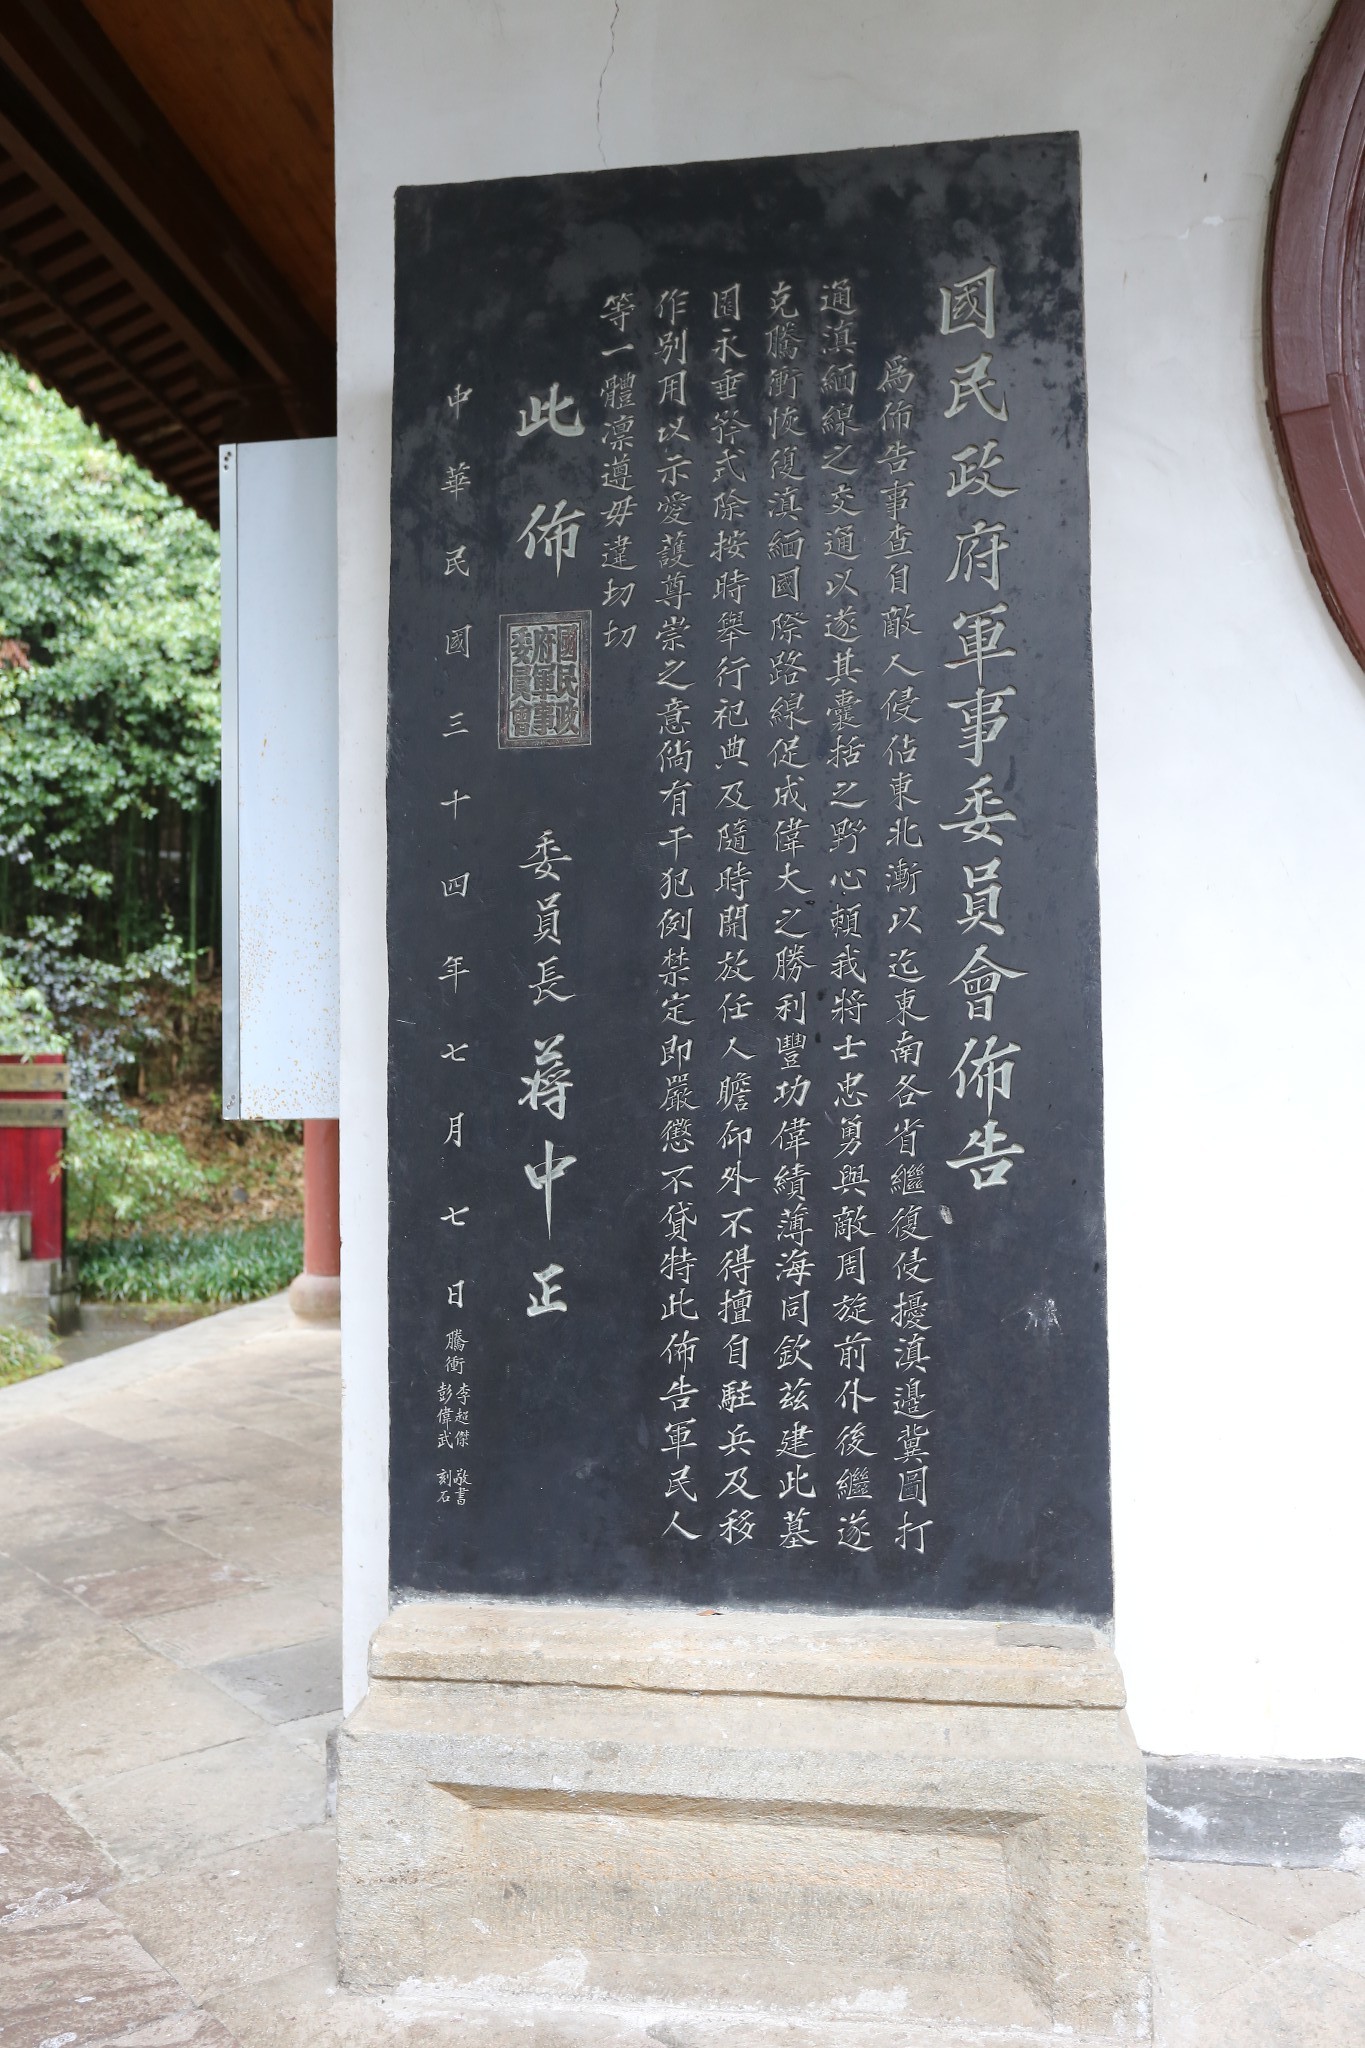 國民政府軍事委員會佈告
為佈告事查自敵人侵佔東北漸以迄東南各省繼復侵擾滇邊冀圖打
通滇緬線之交通以遂其囊括之野心賴我將士忠勇與敵周旋前仆後繼遂
克騰衝恢復滇緬國際路線促成偉大之勝利豐功偉績薄海同欽茲建此墓
園永垂矜式除按時舉行祀典及隨時開放任人瞻仰外不得擅自駐兵及移
作別用以示愛護尊崇之意倘有干犯例禁定即嚴懲不貸特此佈告軍民人
等一體凜遵毋違切切
此佈
國民政府軍事委員會
委員長 蔣中正
中華民國三十四年七月七日
騰衝 李超傑 敬書
彭偉武 刻石